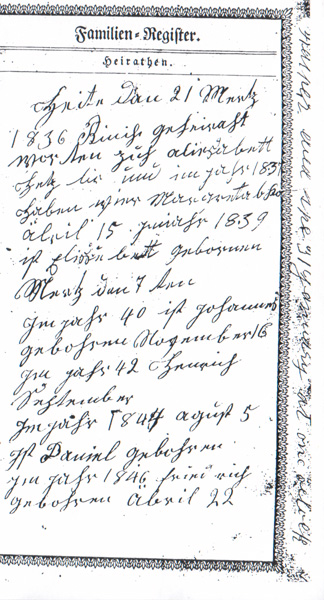 Familien-Register.
Heirathen.
Heite dan 21 Mertz
1836 Binich geheiraht
worten zuh aliesabett
Hetz lie und im jahr 1837
haben wier Margareta
Abril 15 im jahr 1839
ist Eliese bett gebornen
Mertz den 7 ten
Im jahr 40 ist Johannes
gebohren November 16
Im jahr 42 Henrich
Sehtember
Im jahr 1844 agust 5
Ist Daniel gebohren
im jahr 1846 fried rich
gebohren Abril 22